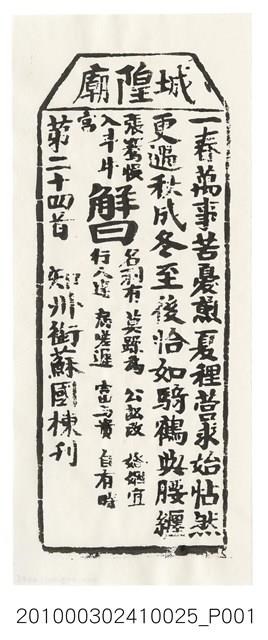 城隍廟
一春萬事苦憂煎夏裡營求始帖然
更遇秋成冬至後恰如騎鶴與腰纏
張騫悞入斗牛宮
解曰
名利有 莫踈為 公訟改 婚姻宜
行人遲 病嗟遲 富與貴 自有時
第二十四首 知州銜蘇國棟刊
201000302410025_P001